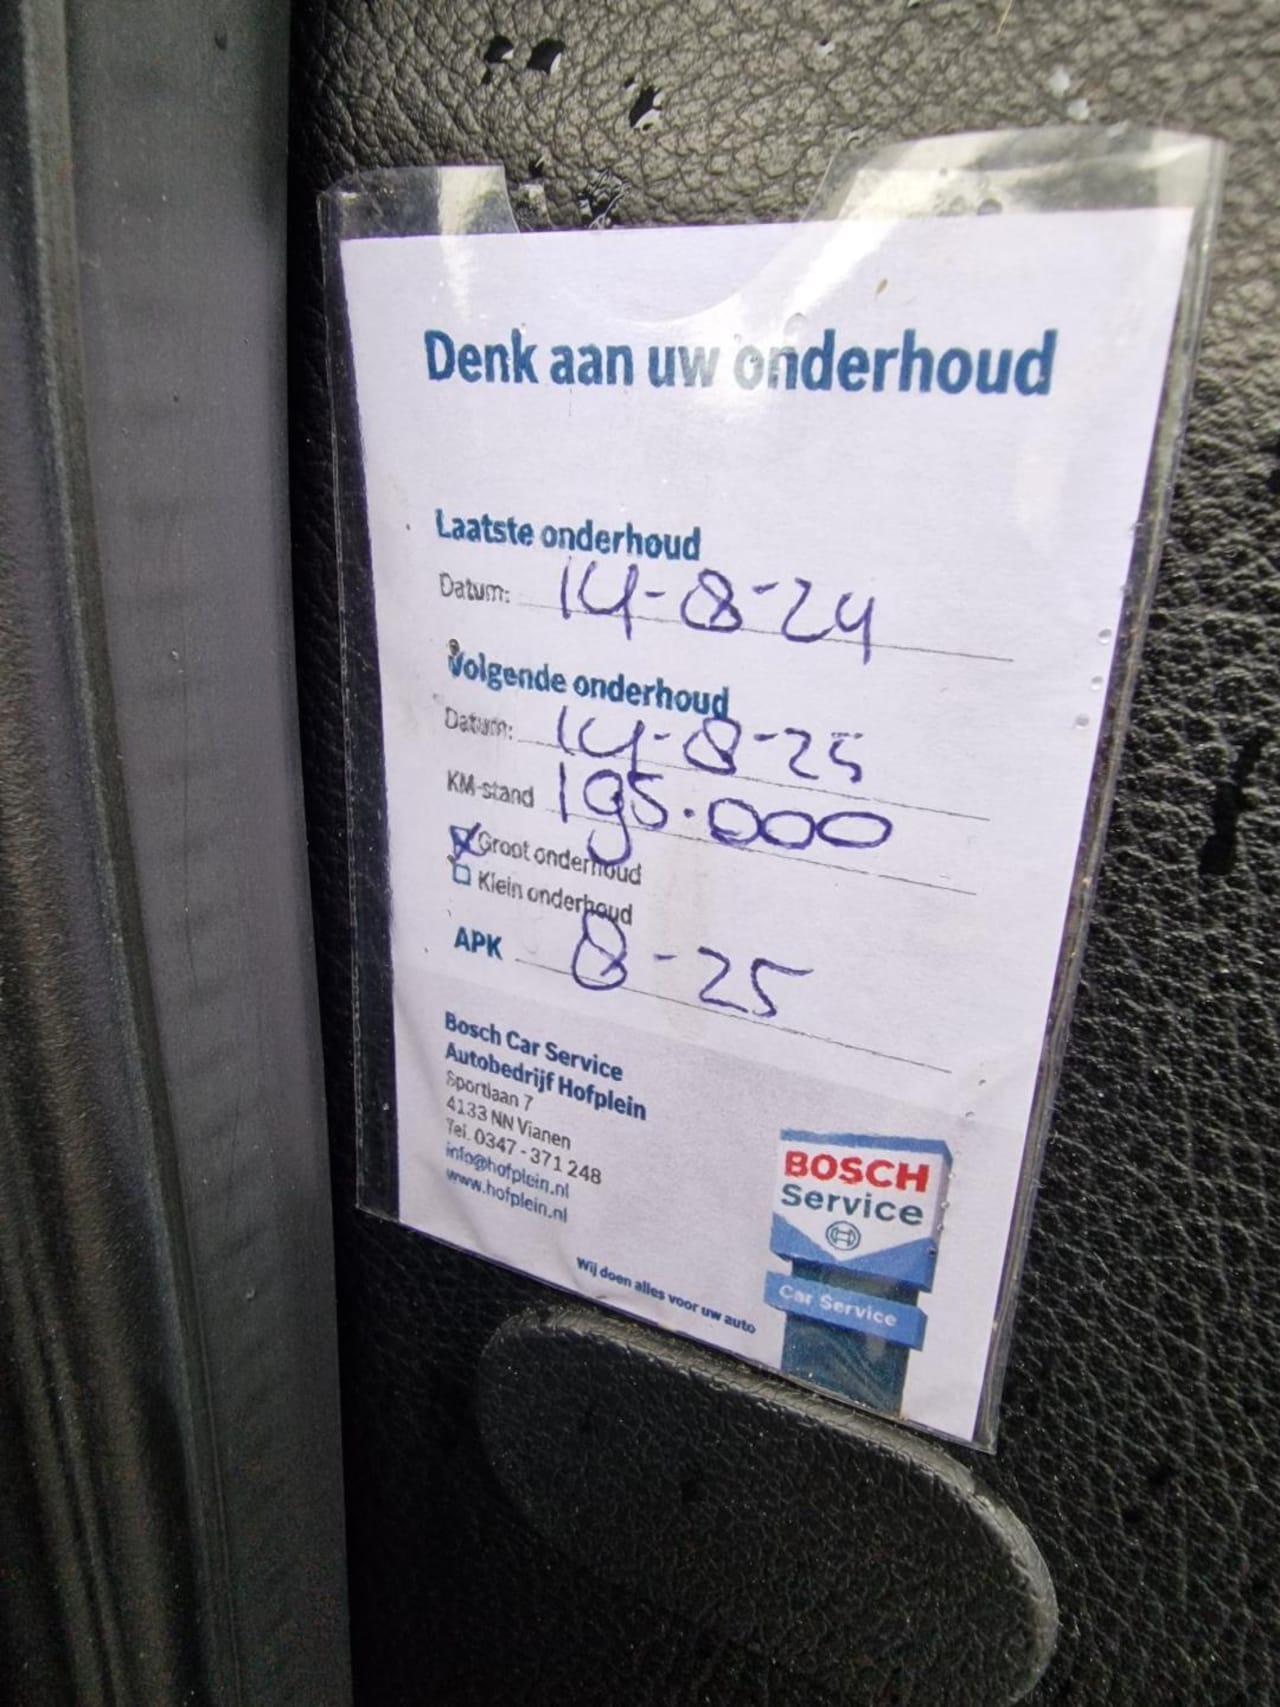 Denk aan uw onderhoud
Laatste onderhoud
Datum: 14-8-24
Volgende onderhoud
Datum: 14-8-25
KM-stand 195.000
Groot onderhoud
Klein onderhoud
APK 8-25
Bosch Car Service
Autobedrijf Hofplein
Sportlaan 7
4133 NN Vianen
Tel. 0347 - 371 248
info@hofplein.nl
www.hofplein.nl
Wij doen alles voor uw auto
BOSCH
Service
Car Service